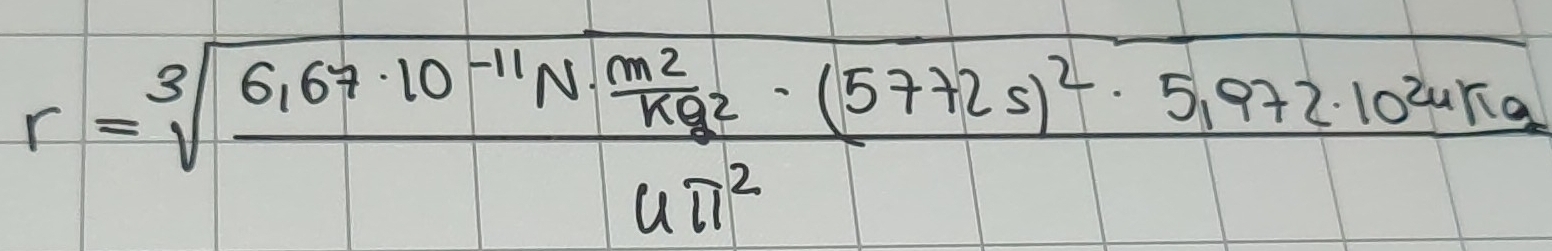 r = ∛(6,67·10⁻¹¹ N · m²/kg² · (5772 s)² · 5,972·10²⁴ kg / 4π²)